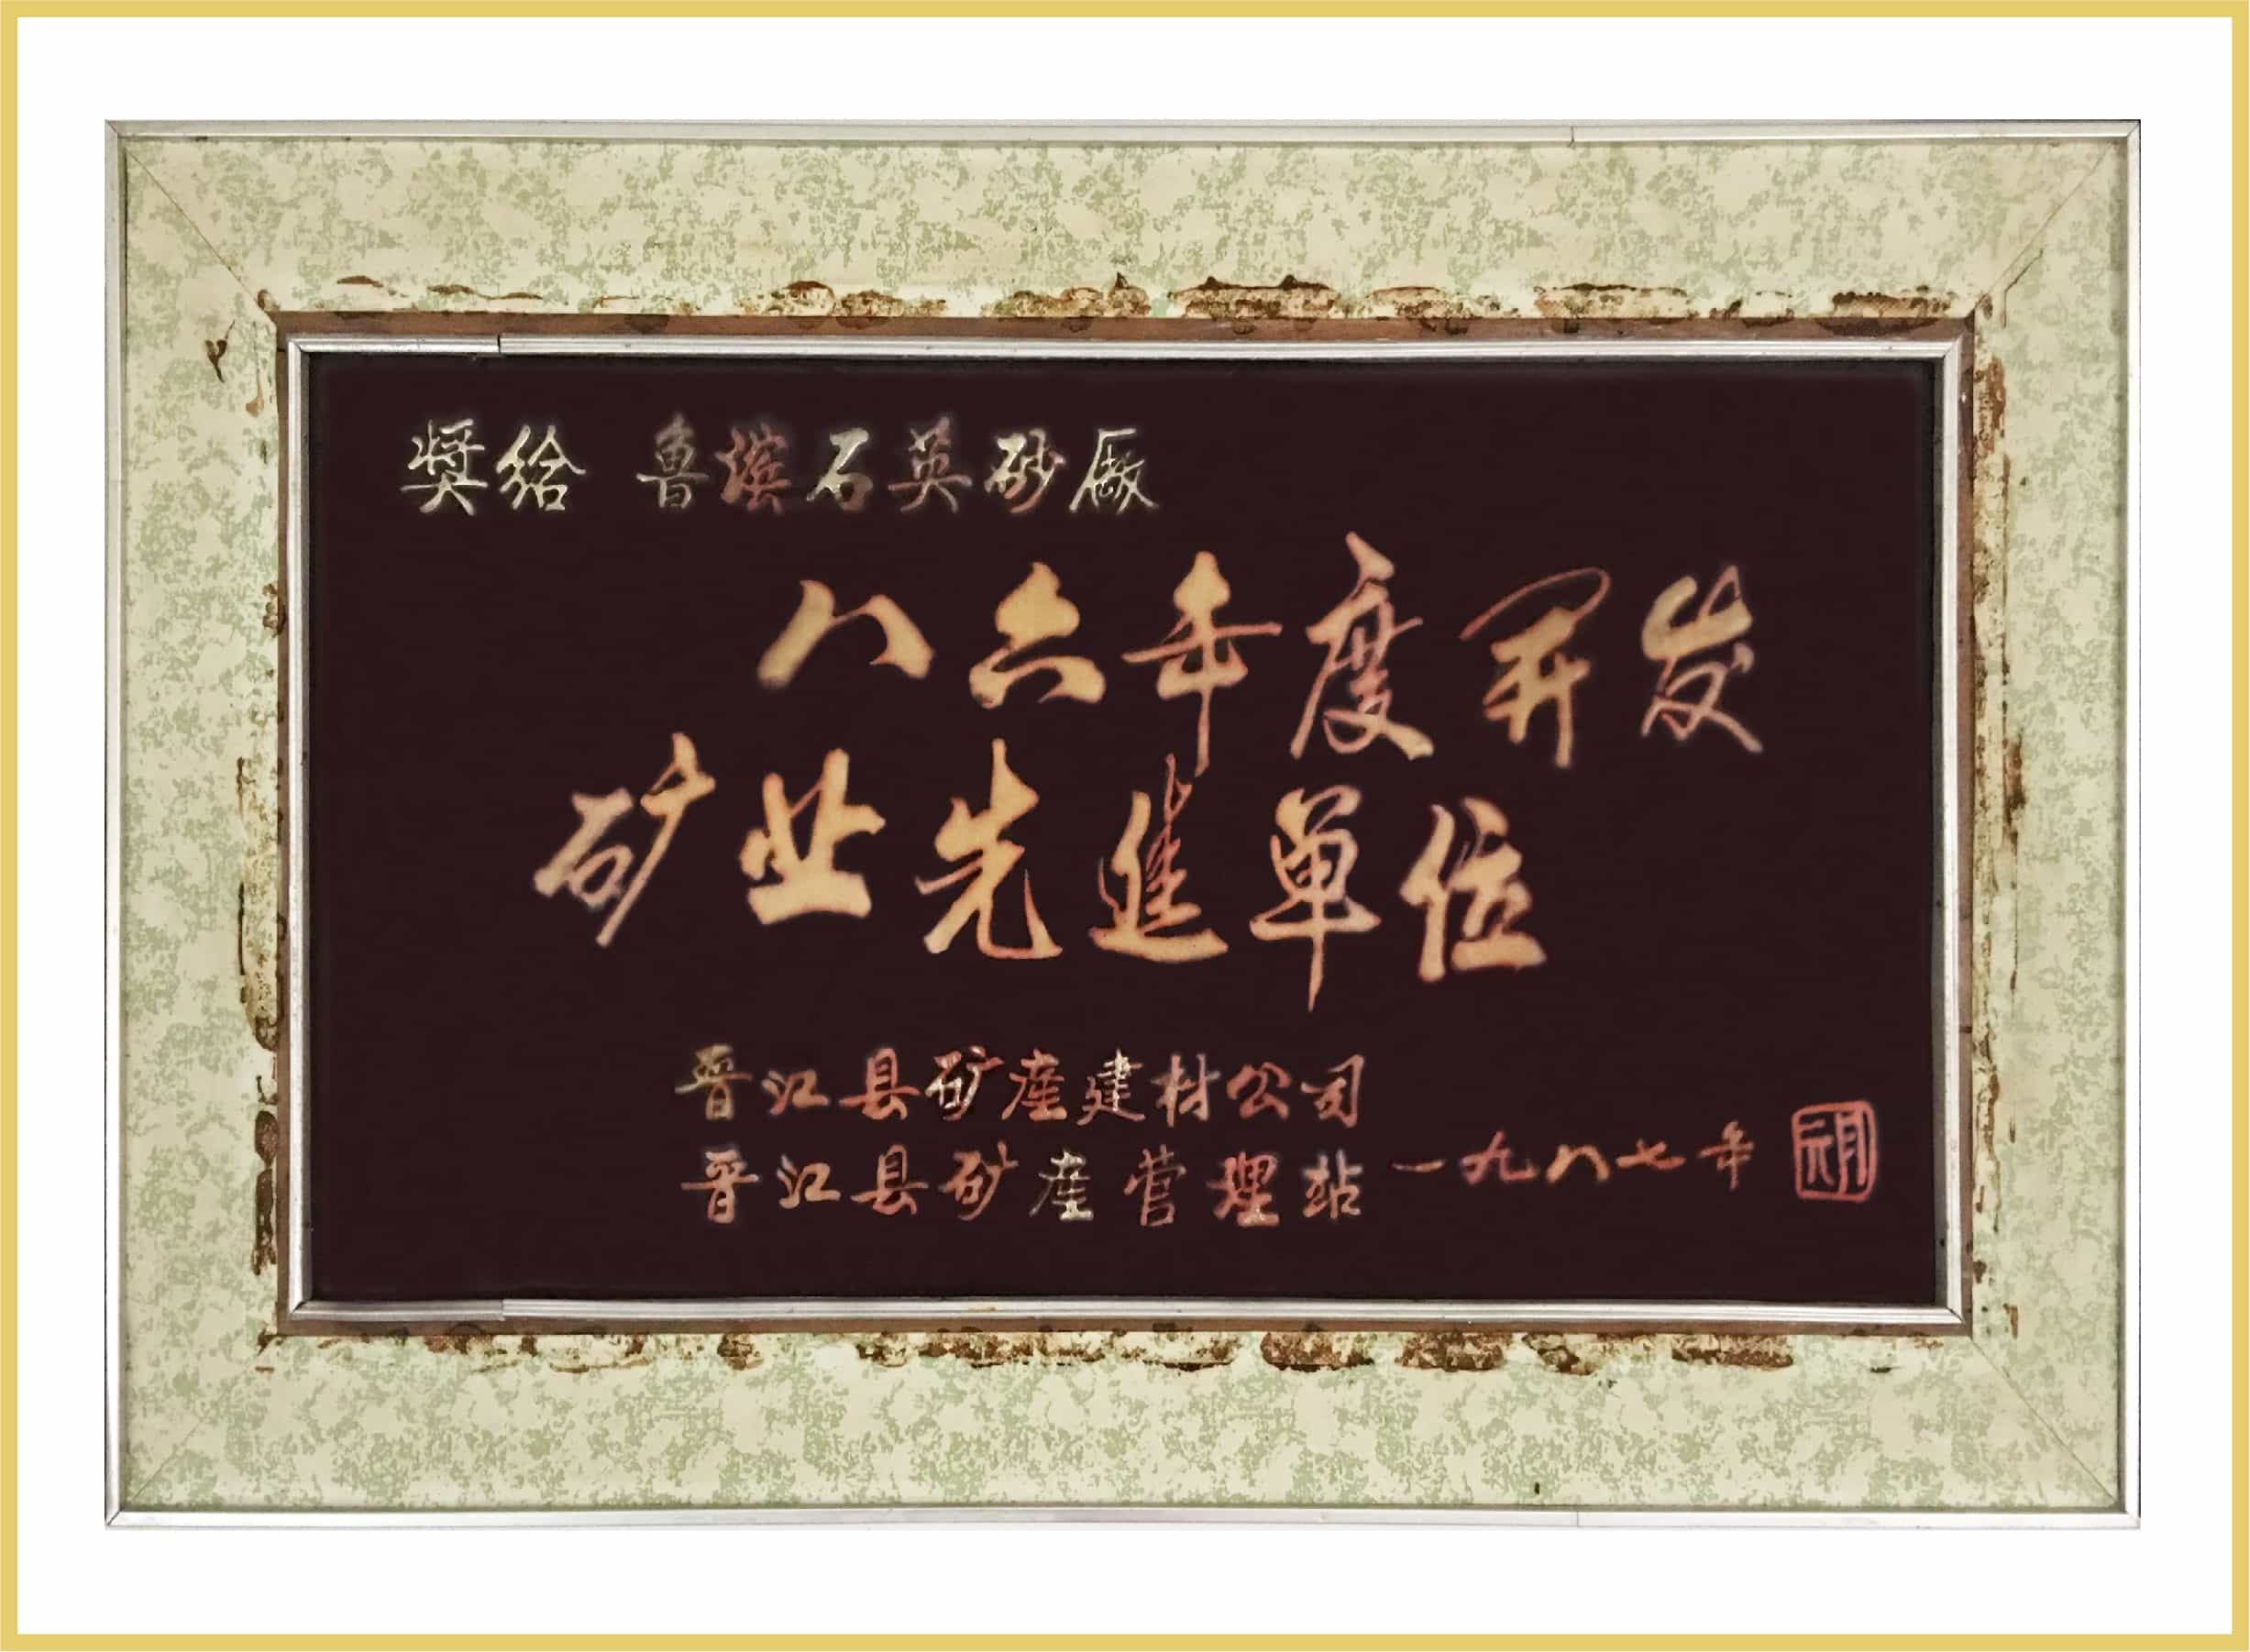 奬给 鲁濱石英砂厰
八六年度开发
矿业先進单位
晋江县矿産建材公司
晋江县矿産管理站 一九八七年